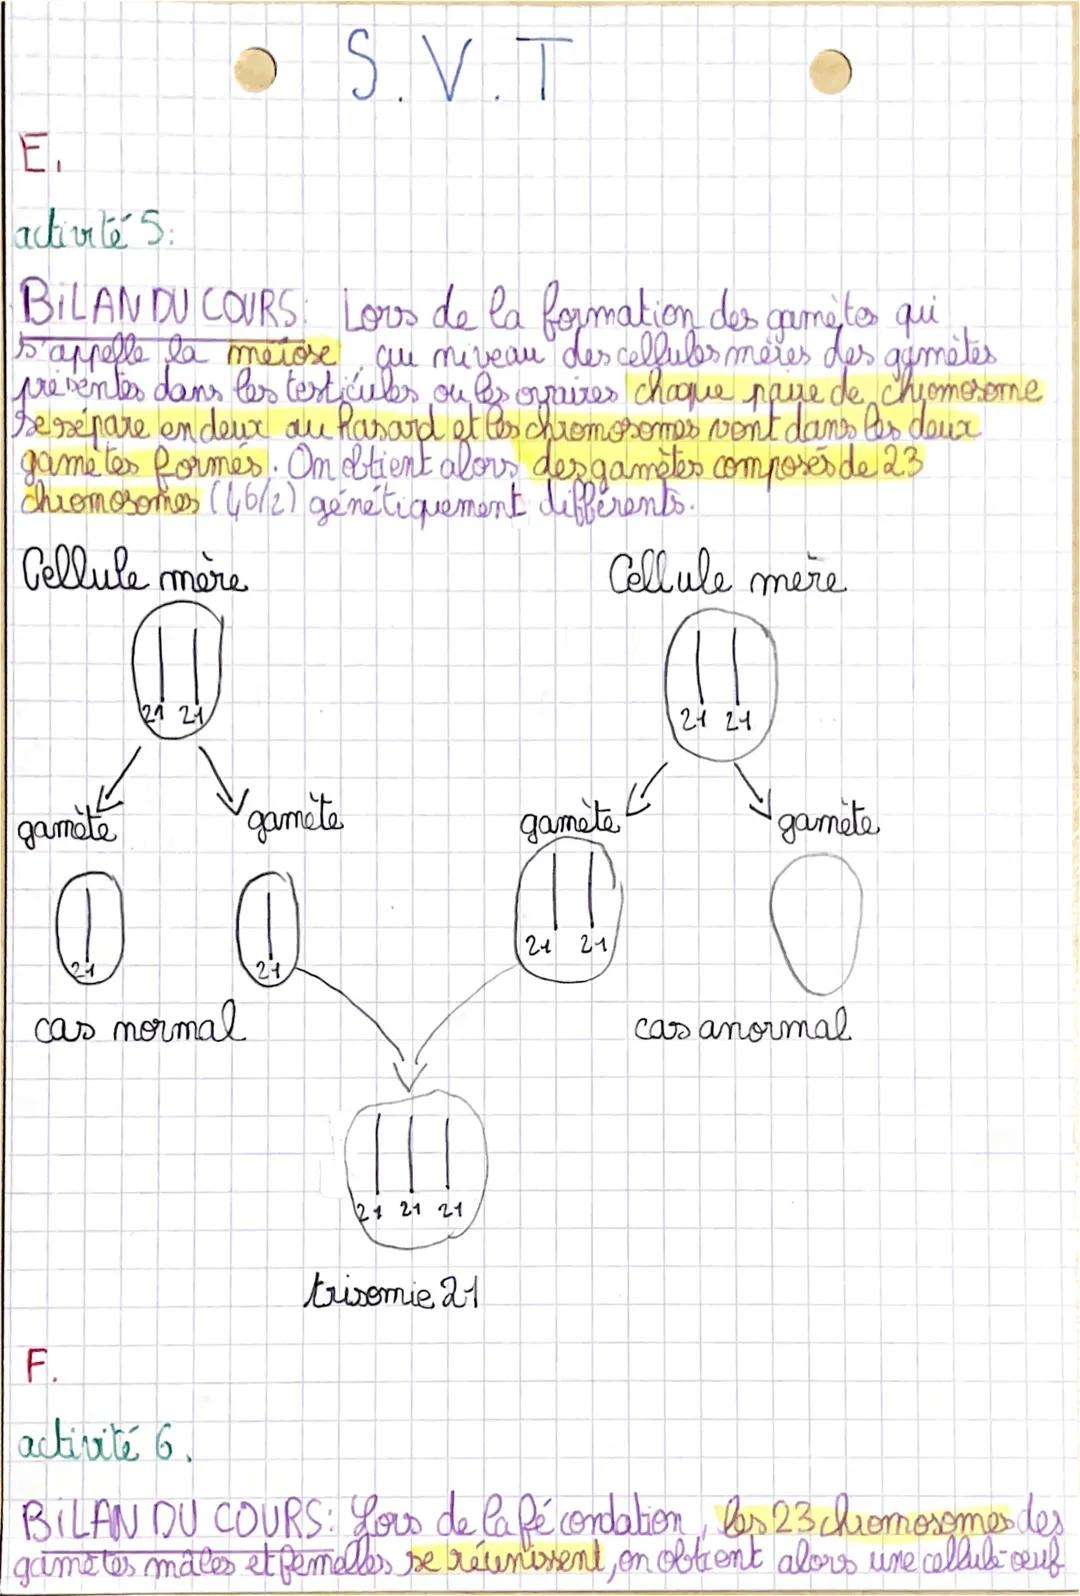 S.V.T
E.
activité 5:
BILAN DU COURS: Lors de la formation des gamètes qui
s'appelle la méiose, au niveau des cellules mères des gamètes
présentes dans les testicules ou les ovaires chaque paire de chromosome
se sépare en deux au hasard et les chromosomes vont dans les deux
gamètes formés. On obtient alors des gamètes composés de 23
chromosomes (46/2) génétiquement différents.
Cellule mère Cellule mère
21 21 21 21
gamète gamète gamète gamète
21 21 21 21
cas normal cas anormal
21 21 21
trisomie 21
F.
activité 6.
BILAN DU COURS: Lors de la fécondation, les 23 chromosomes des
gamètes mâles et femelles se réunissent, on obtient alors une cellule-œuf